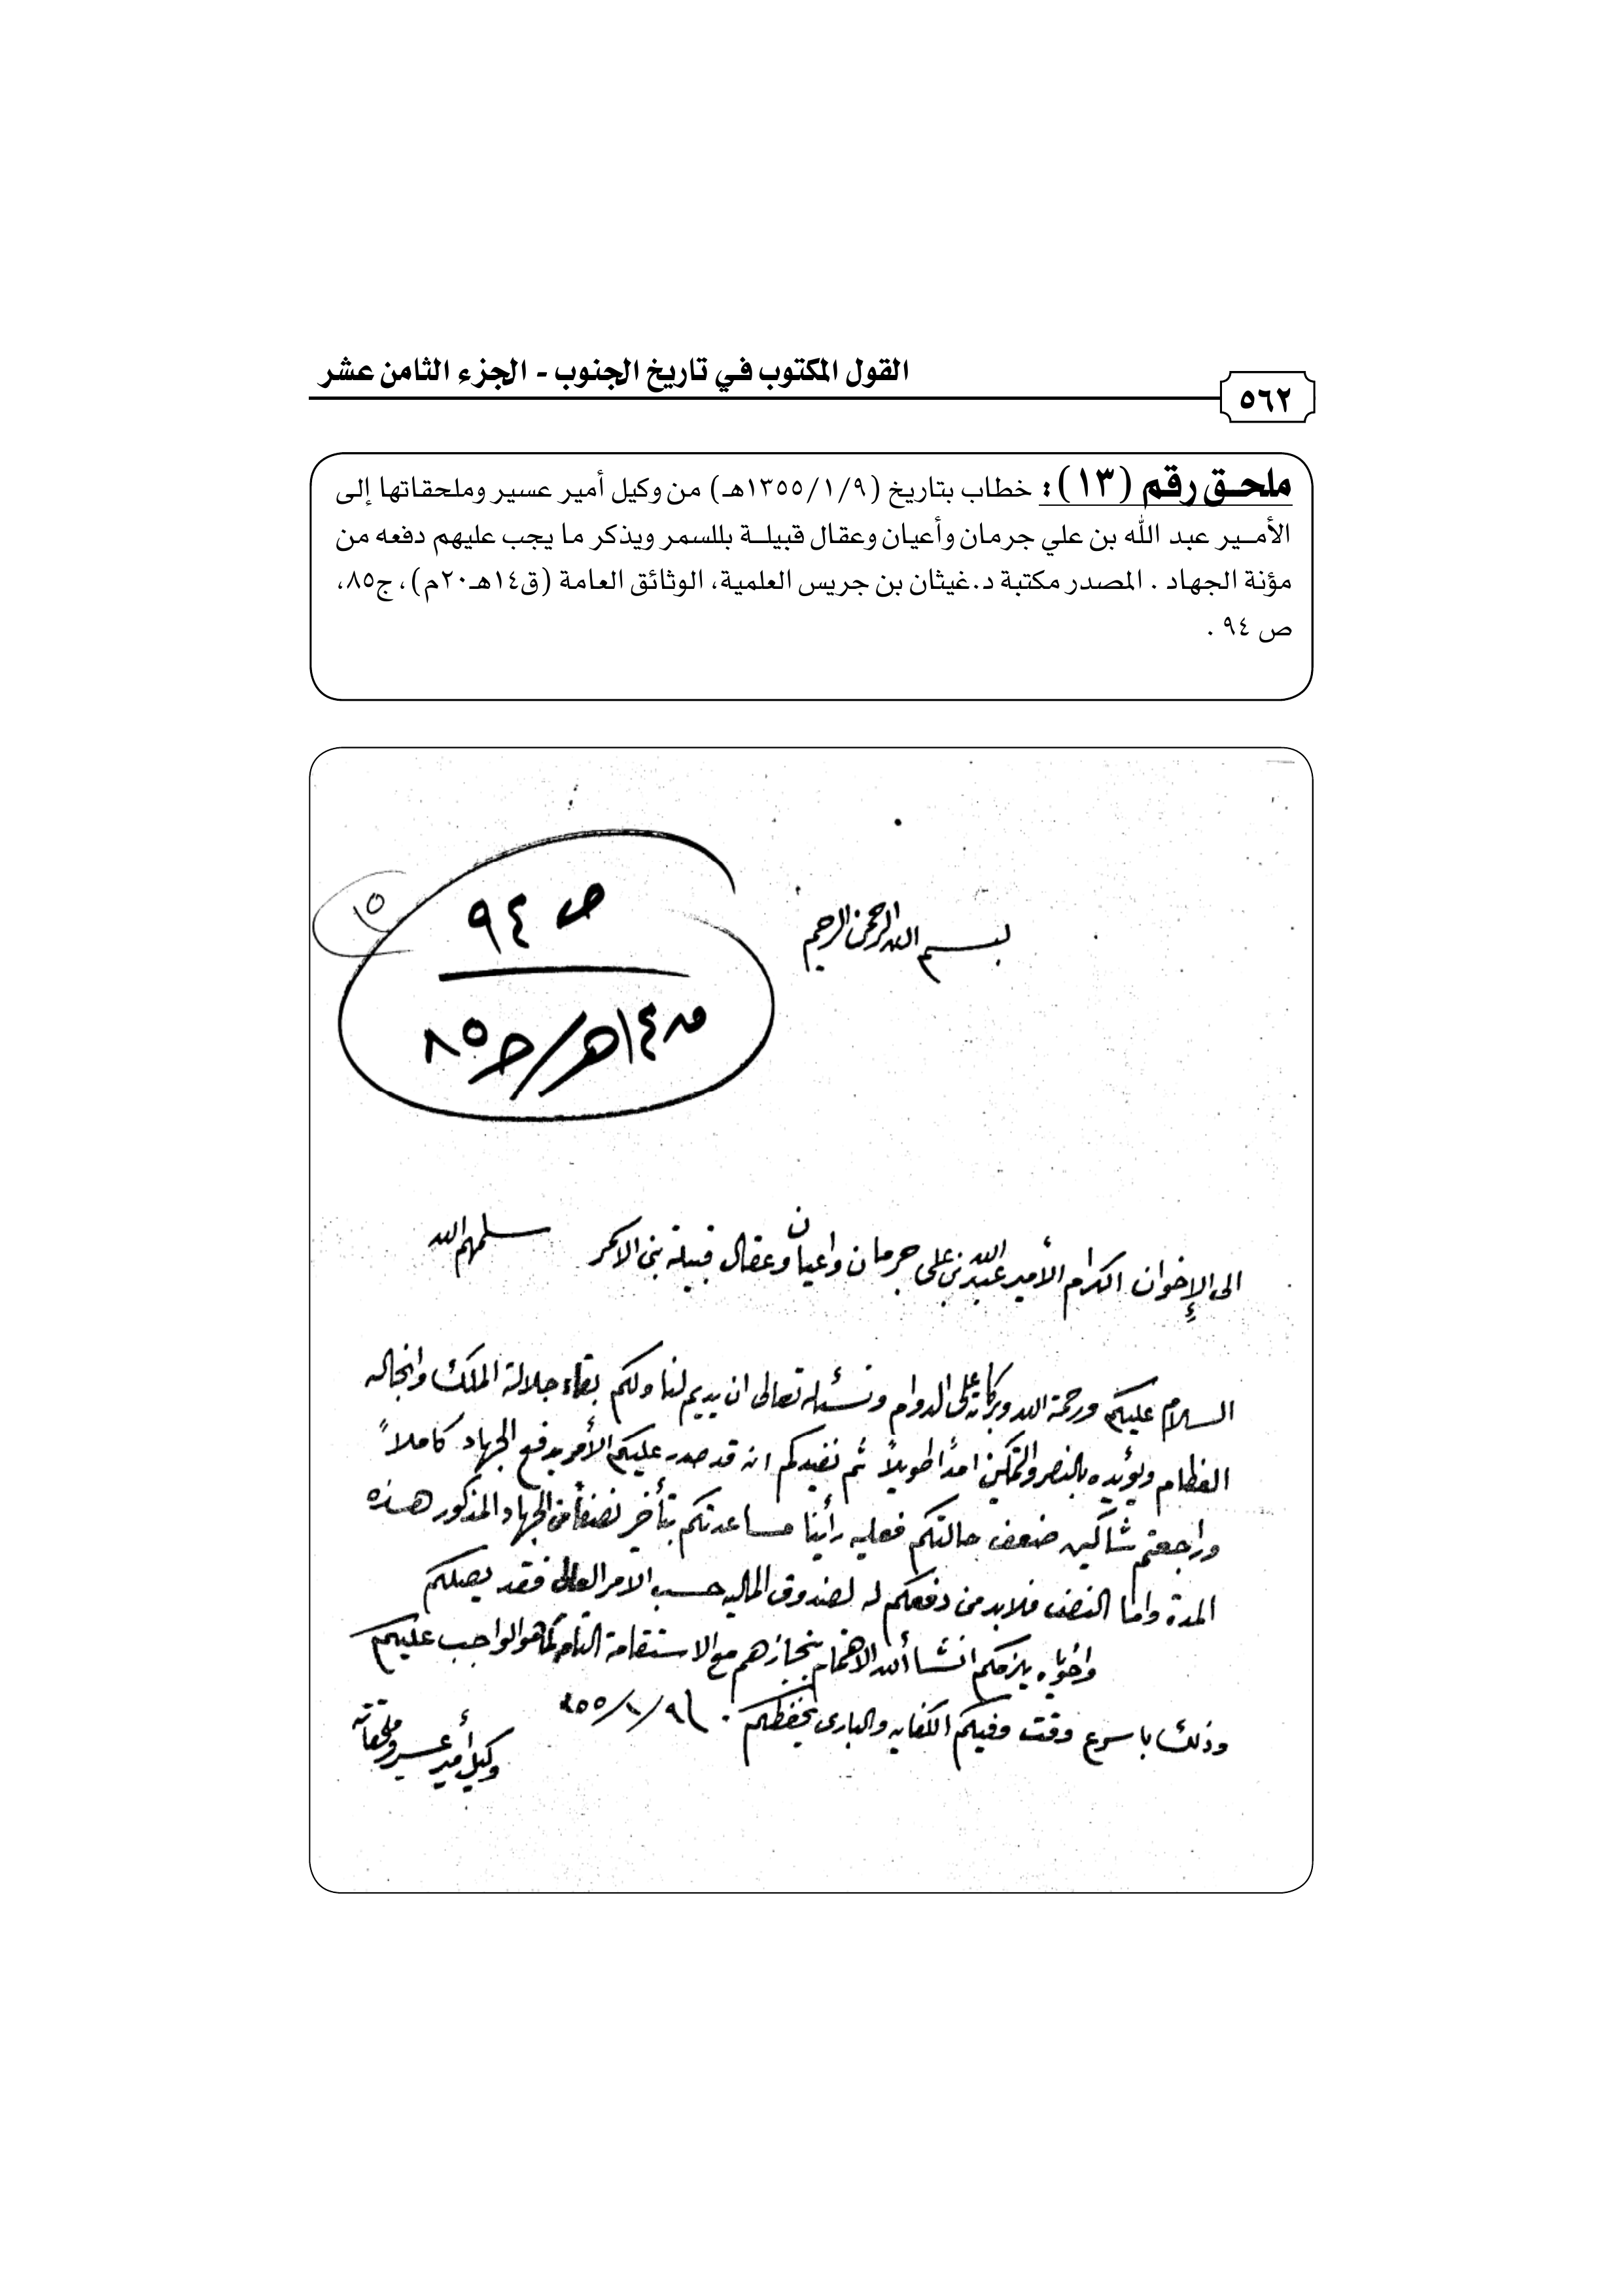 القول المكتوب في تاريخ الجنوب - الجزء الثامن عشر
٥٦٢
ملحـق رقم (١٣): خطاب بتاريخ (١٣٥٥/١/٩هـ) من وكيل أمير عسير وملحقاتها إلى
الأمـير عبد الله بن علي جرمان وأعيان وعقال قبيلـة بللسمر ويذكر ما يجب عليهم دفعه من
مؤنة الجهاد . المصدر مكتبة د.غيثان بن جريس العلمية، الوثائق العامة (ق١٤هـ٢٠م)، ج٨٥،
ص ٩٤ .
١٥
ص ٩٤
ق١٤هـ/ج٨٥
بسم الله الرحمن الرحيم
الى الإخوان الكرام الأمير عبد الله بن علي جرمان واعيان وعقال قبيلة بنى الاحمر سلمهم الله
السلام عليكم ورحمة الله وبركاته على الدوام ونسئله تعالى ان يديم لنا ولكم بقاء جلالة الملك وانجاله
العظام ويؤيده بالنصر والتمكين امداً طويلاً ثم نفيدكم انه قد صدر عليكم الأمر بدفع الجهاد كاملاً
وراجعتم شاكين ضعف حالتكم فعليه رأينا مساعدتكم بتأخير نصفاً من الجهاد المذكور هذه
المدة واما النصف فلابد من دفعكم له لصندوق الماليه حسب الامر العالى فقد يصلكم
واخوياه يلزمكم انشاألله الاهتمام بنجازهم مع الاستقامة التامه كما هو الواجب عليكم
وذلك باسرع وقت وفيكم الكفايه والبارى يحفظكم . ٩/١/٣٥٥
وكيل أمير عسير وملحقاته